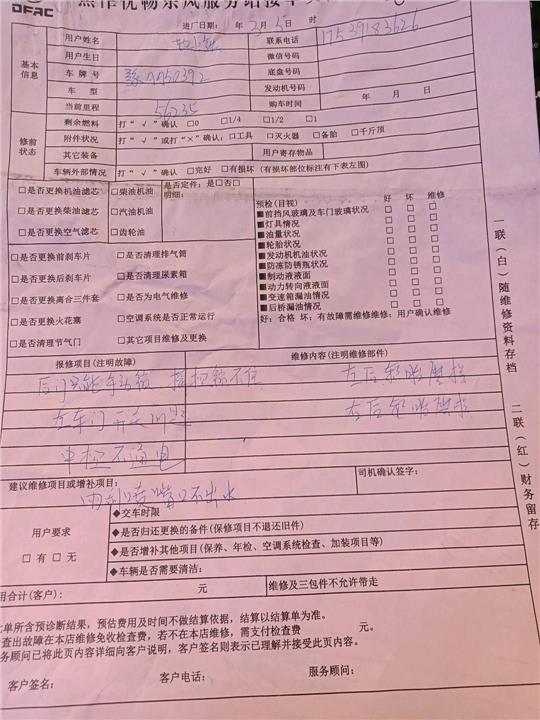 DFAC
进厂日期： 年 3 月 5 日 时
用户姓名 联系电话 17539183626
基本信息 用户生日 微信号码
车牌号 底盘号码
车 型 发动机号码
当前里程 56235 购车时间 年 月 日
修前状态 剩余燃料 打“√”确认 □0 □1/4 □1/2 □1
附件状况 打“√”或打“×”确认：□工具 □灭火器 □备胎 □千斤顶
其它装备 用户寄存物品
车辆外部情况 打“√”确认 □完好 □有损坏（有损坏部位标注有下表左图）
□是否更换机油滤芯 □柴油机油 是否定件：是□否□
明细：
□是否更换柴油滤芯 □汽油机油
□是否更换空气滤芯 □齿轮油
□是否更换前刹车片 □是否清理排气筒
□是否更换后刹车片 □是否清理尿素箱
□是否更换离合三件套 □是否为电气维修
□是否更换火花塞 □空调系统是否正常运行
□是否清理节气门 □其它项目维修及更换
预检（目视） 好 坏 维修
■前挡风玻璃及车门玻璃状况 □ □ □
■灯具情况 □ □ □
■油量状况 □ □ □
■轮胎状况 □ □ □
■发动机机油状况 □ □ □
■防冻防锈瓶状况 □ □ □
■制动液液面 □ □ □
■动力转向液液面 □ □ □
■变速箱漏油情况 □ □ □
■后桥漏油情况 □ □ □
好：合格 坏：有故障需维修维修：用户确认维修
报修项目（注明故障） 维修内容（注明维修部件）
后门 左后轮胎磨损
左车门开关问题 右后轮胎磨损
中控不通电
建议维修项目或增补项目： 司机确认签字：
雨刮喷嘴不出水
用户要求
□有 □无
◆交车时限
◆是否归还更换的备件（保修项目不退还旧件）
◆是否增补其他项目（保养、年检、空调系统检查、加装项目等）
◆车辆是否需要清洁：
用合计（客户）： 元 维修及三包件不允许带走
此单所含预诊断结果，预估费用及时间不做结算依据，结算以结算单为准。
查出故障在本店维修免收检查费，若不在本店维修，需支付检查费 元。
务顾问已将此页内容详细向客户说明，客户签名则表示已理解并接受此页内容。
客户签名： 客户电话： 服务顾问：
一联（白）随维修资料存档
二联（红）财务留存